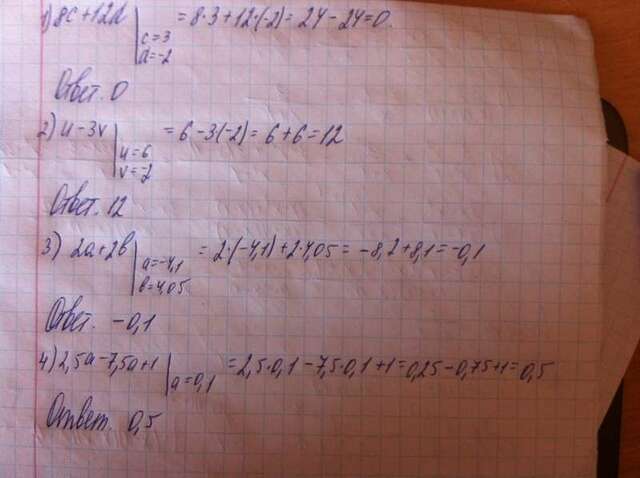 1) 8c+12d | c=3 d=-2 = 8·3+12·(-2)= 24-24=0.
Ответ. 0
2) u-3v | u=6 v=-2 = 6-3(-2)= 6+6=12
Ответ. 12
3) 2a+2b | a=-4,1 b=4,05 = 2·(-4,1)+2·4,05= -8,2+8,1=-0,1
Ответ. -0,1
4) 2,5a-7,5a+1 | a=0,1 =2,5·0,1-7,5·0,1+1=0,25-0,75+1=0,5
Ответ. 0,5